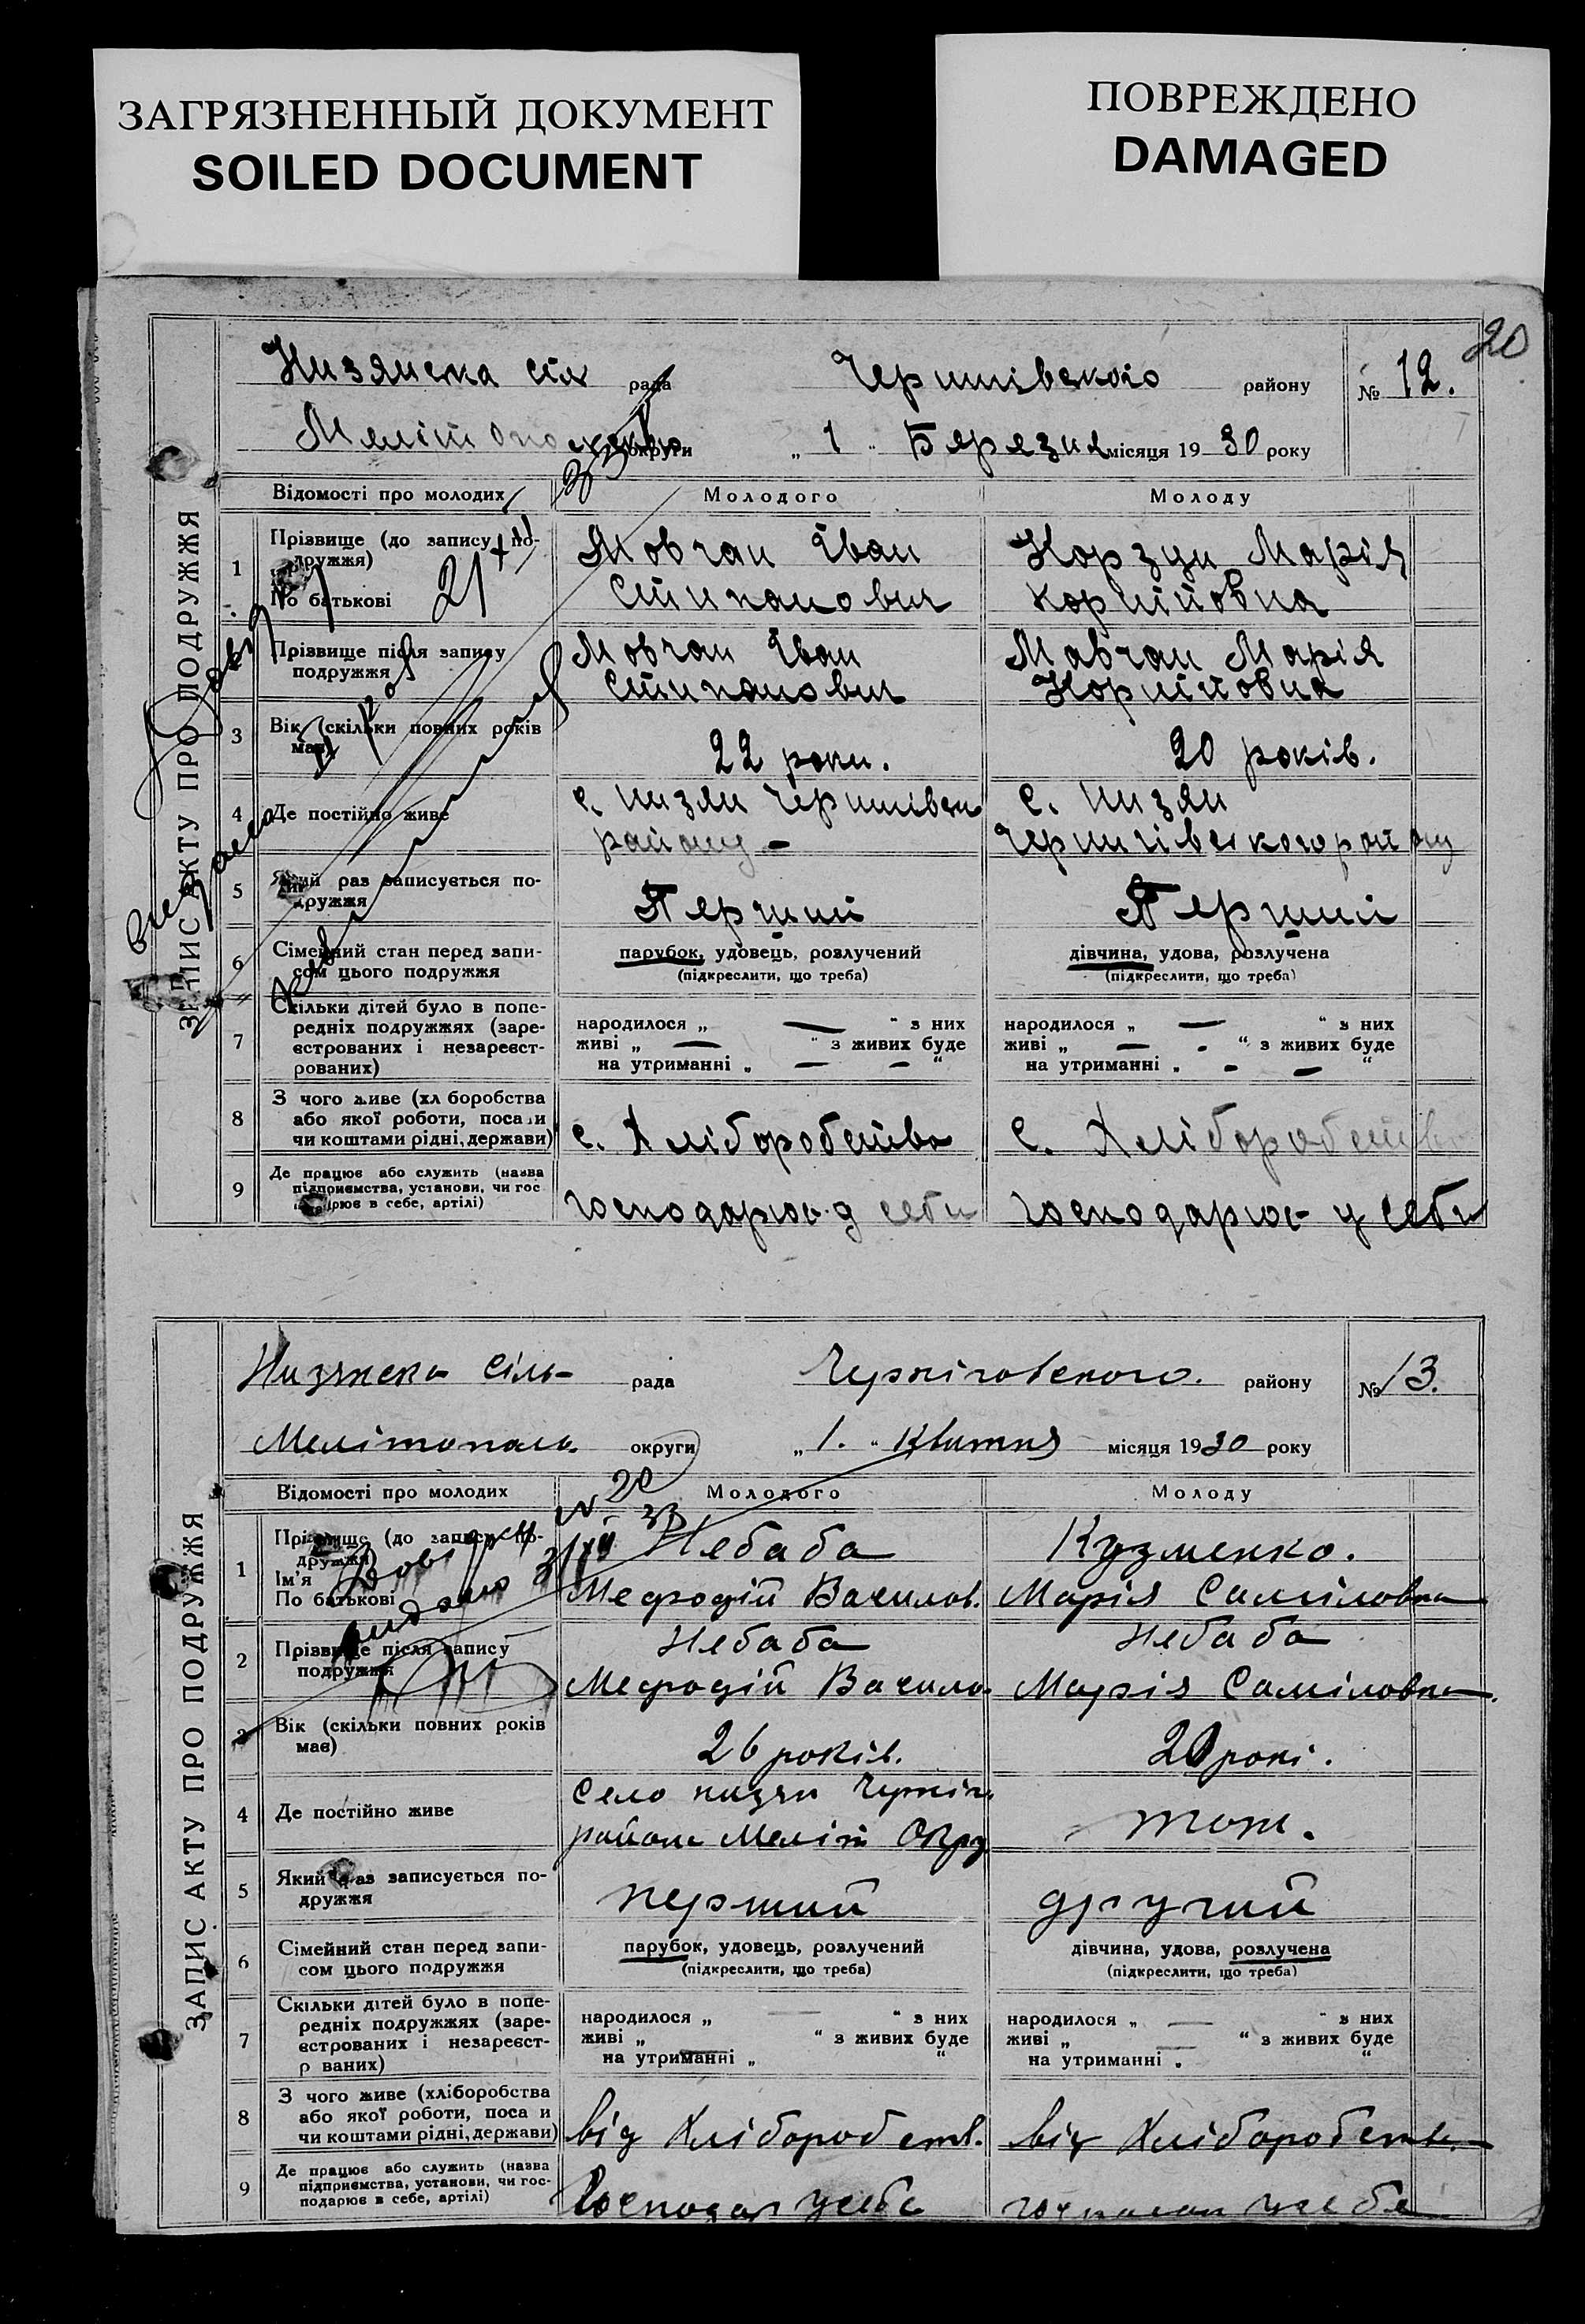 ЗАГРЯЗНЕННЫЙ ДОКУМЕНТ
SOILED DOCUMENT
ПОВРЕЖДЕНО
DAMAGED
20
Низянска сіл рада Чернигівського району № 12.
округи „ 1 “ Березня місяця 1930 року
ЗАПИС АКТУ ПРО ПОДРУЖЖЯ
Відомості про молодих Молодого Молоду
1 Прізвище (до запису по- Мовчан Іван Корзун Марія
дружжя)
По батькові Стипанович Корнійовна
21
Прізвище після запису Мовчан Іван Мавчан Марія
подружжя Стипанович Корнійовна
3 Вік (скільки повних років
має) 22 роки. 20 років.
4 Де постійно живе с. Низяни с. Низяни
району - Чернигівського району
5 Який раз записується по-
дружжя Перший Перший
6 Сімейний стан перед запи- парубок, удовець, розлучений дівчина, удова, розлучена
сом цього подружжя (підкреслити, що треба) (підкреслити, що треба)
7 Скільки дітей було в попе-
редніх подружжях (заре- народилося „ — “ з них народилося „ — “ з них
єстрованих і незареєст- живі „ — “ з живих буде живі „ — “ з живих буде
рованих) на утриманні „ — — “ на утриманні „ - — “
8 З чого живе (хл боробства
або якої роботи, поса и
чи коштами рідні, держави) с. Хліборобства с. Хліборобства
9 Де працює або служить (назва
підприємства, установи, чи гос
рює в себе, артілі) господарює у себи господарює у себи
Низянска сіль- рада Черніговського. району № 13.
Мелітополь округи „ 1. “ Квитня місяця 1930 року
ЗАПИС АКТУ ПРО ПОДРУЖЖЯ
Відомості про молодих Молодого Молоду
№ 20
1 Прізвище (до запису по- Небаба Кузменко.
дружжя)
Ім'я
По батькові Мефодій Васиłов. Марія Саміловна
2 Прізвище після запису Небаба Небаба
подружжя Мефодій Васило. Марія Саміловна.
3 Вік (скільки повних років
має) 26 років.
4 Де постійно живе Село низяни Черніг.
района Меліт Окру тож.
5 Який раз записується по-
дружжя перший другий
6 Сімейний стан перед запи- парубок, удовець, розлучений дівчина, удова, розлучена
сом цього подружжя (підкреслити, що треба) (підкреслити, що треба)
7 Скільки дітей було в попе-
редніх подружжях (заре- народилося „ — “ з них народилося „ — “ з них
єстрованих і незареєст- живі „ “ з живих буде живі „ “ з живих буде
р ваних) на утриманні „ “ на утриманні „ “
8 З чого живе (хліборобства
або якої роботи, поса и
чи коштами рідні, держави) від Хліборобств. від Хліборобств.
9 Де працює або служить (назва
підприємства, установи, чи гос-
подарює в себе, артілі) Господар у себе у себе